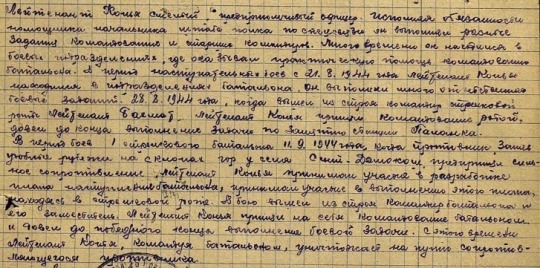 Лейтенант Копя смелый и предприимчивый офицер. Исполняя обязанности
помощника начальника штаба полка по он выполнял разные
задания командования и старших командиров. Много времени он находился в
боевых подразделениях, где оказывал практическую помощь командованию
батальона. В период наступательных боев с 21.8.1944 года лейтенант Копя
находился в подразделениях батальона. Он выполнял много ответственных
боевых заданий. 28.8.1944 года, когда вышел из строя командир стрелковой
роты лейтенант лейтенант Копя принял командование ротой,
довел до конца выполнение задачи по станции
В период боев 1 стрелкового батальона 11.9.1944 года, когда противник
рубежи на склонах гор у села превратив силь-
ное сопротивление, лейтенант Копя принимал участие в разработке
плана наступления батальона, принимал участие в выполнении этого плана,
находясь в стрелковой роте. В бою вышел из строя командир батальона и
его заместитель. Лейтенант Копя принял на себя командование батальоном
и довел до победного конца выполнение боевой задачи. С этого времени
лейтенант Копя, командуя батальоном, уничтожает на пути сопротив-
ляющегося противника